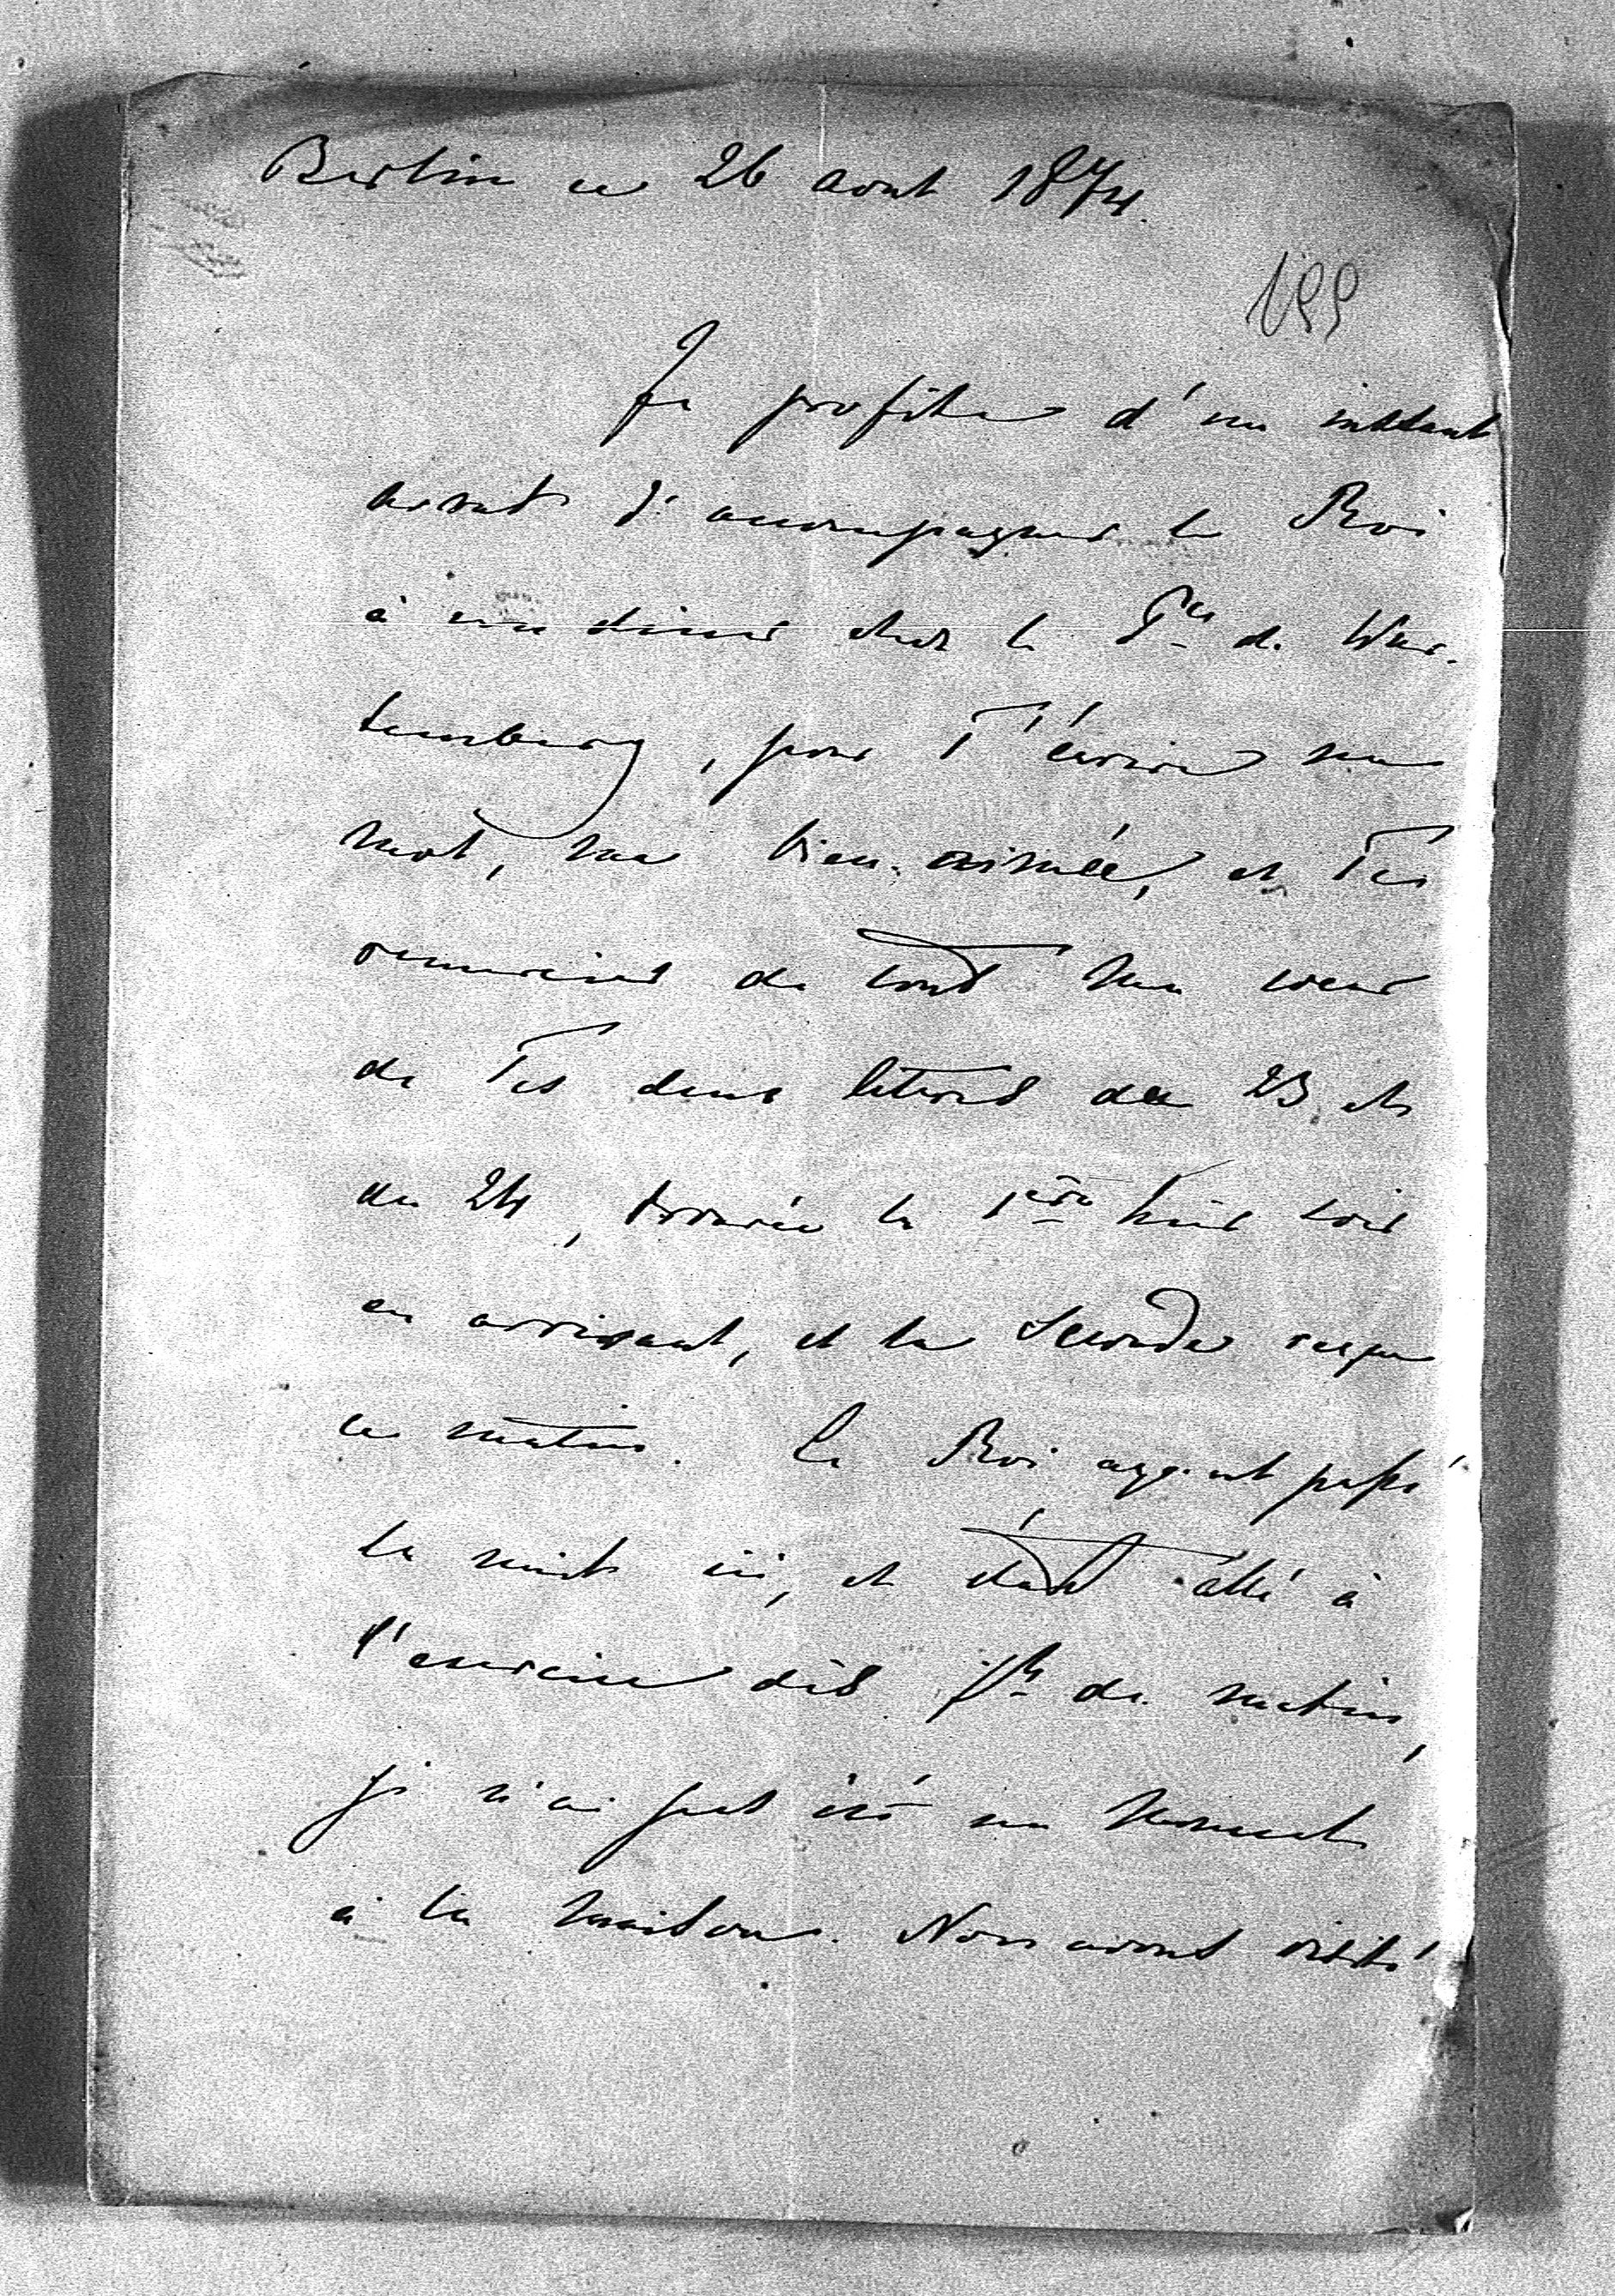 Berlin ce 26 aout 1874.
199
Je profite d'un instant
avant d'accompagner le Roi
à un diner chez le Pce de Wur-
temberg, pour T'écrire un
mot, ma bien-aimée, et Te
remercier de tout mon coeur
de Tes deux lettres du 23 et
du 24, trouvée la 1ère hier soir
en arrivant, et la seconde reçue
ce matin. Le Roi ayant passé
la nuit ici, et étant allé à
l'exercice dès h de matin,
je n'ai pas été un moment
à la maison. Nous avons visité